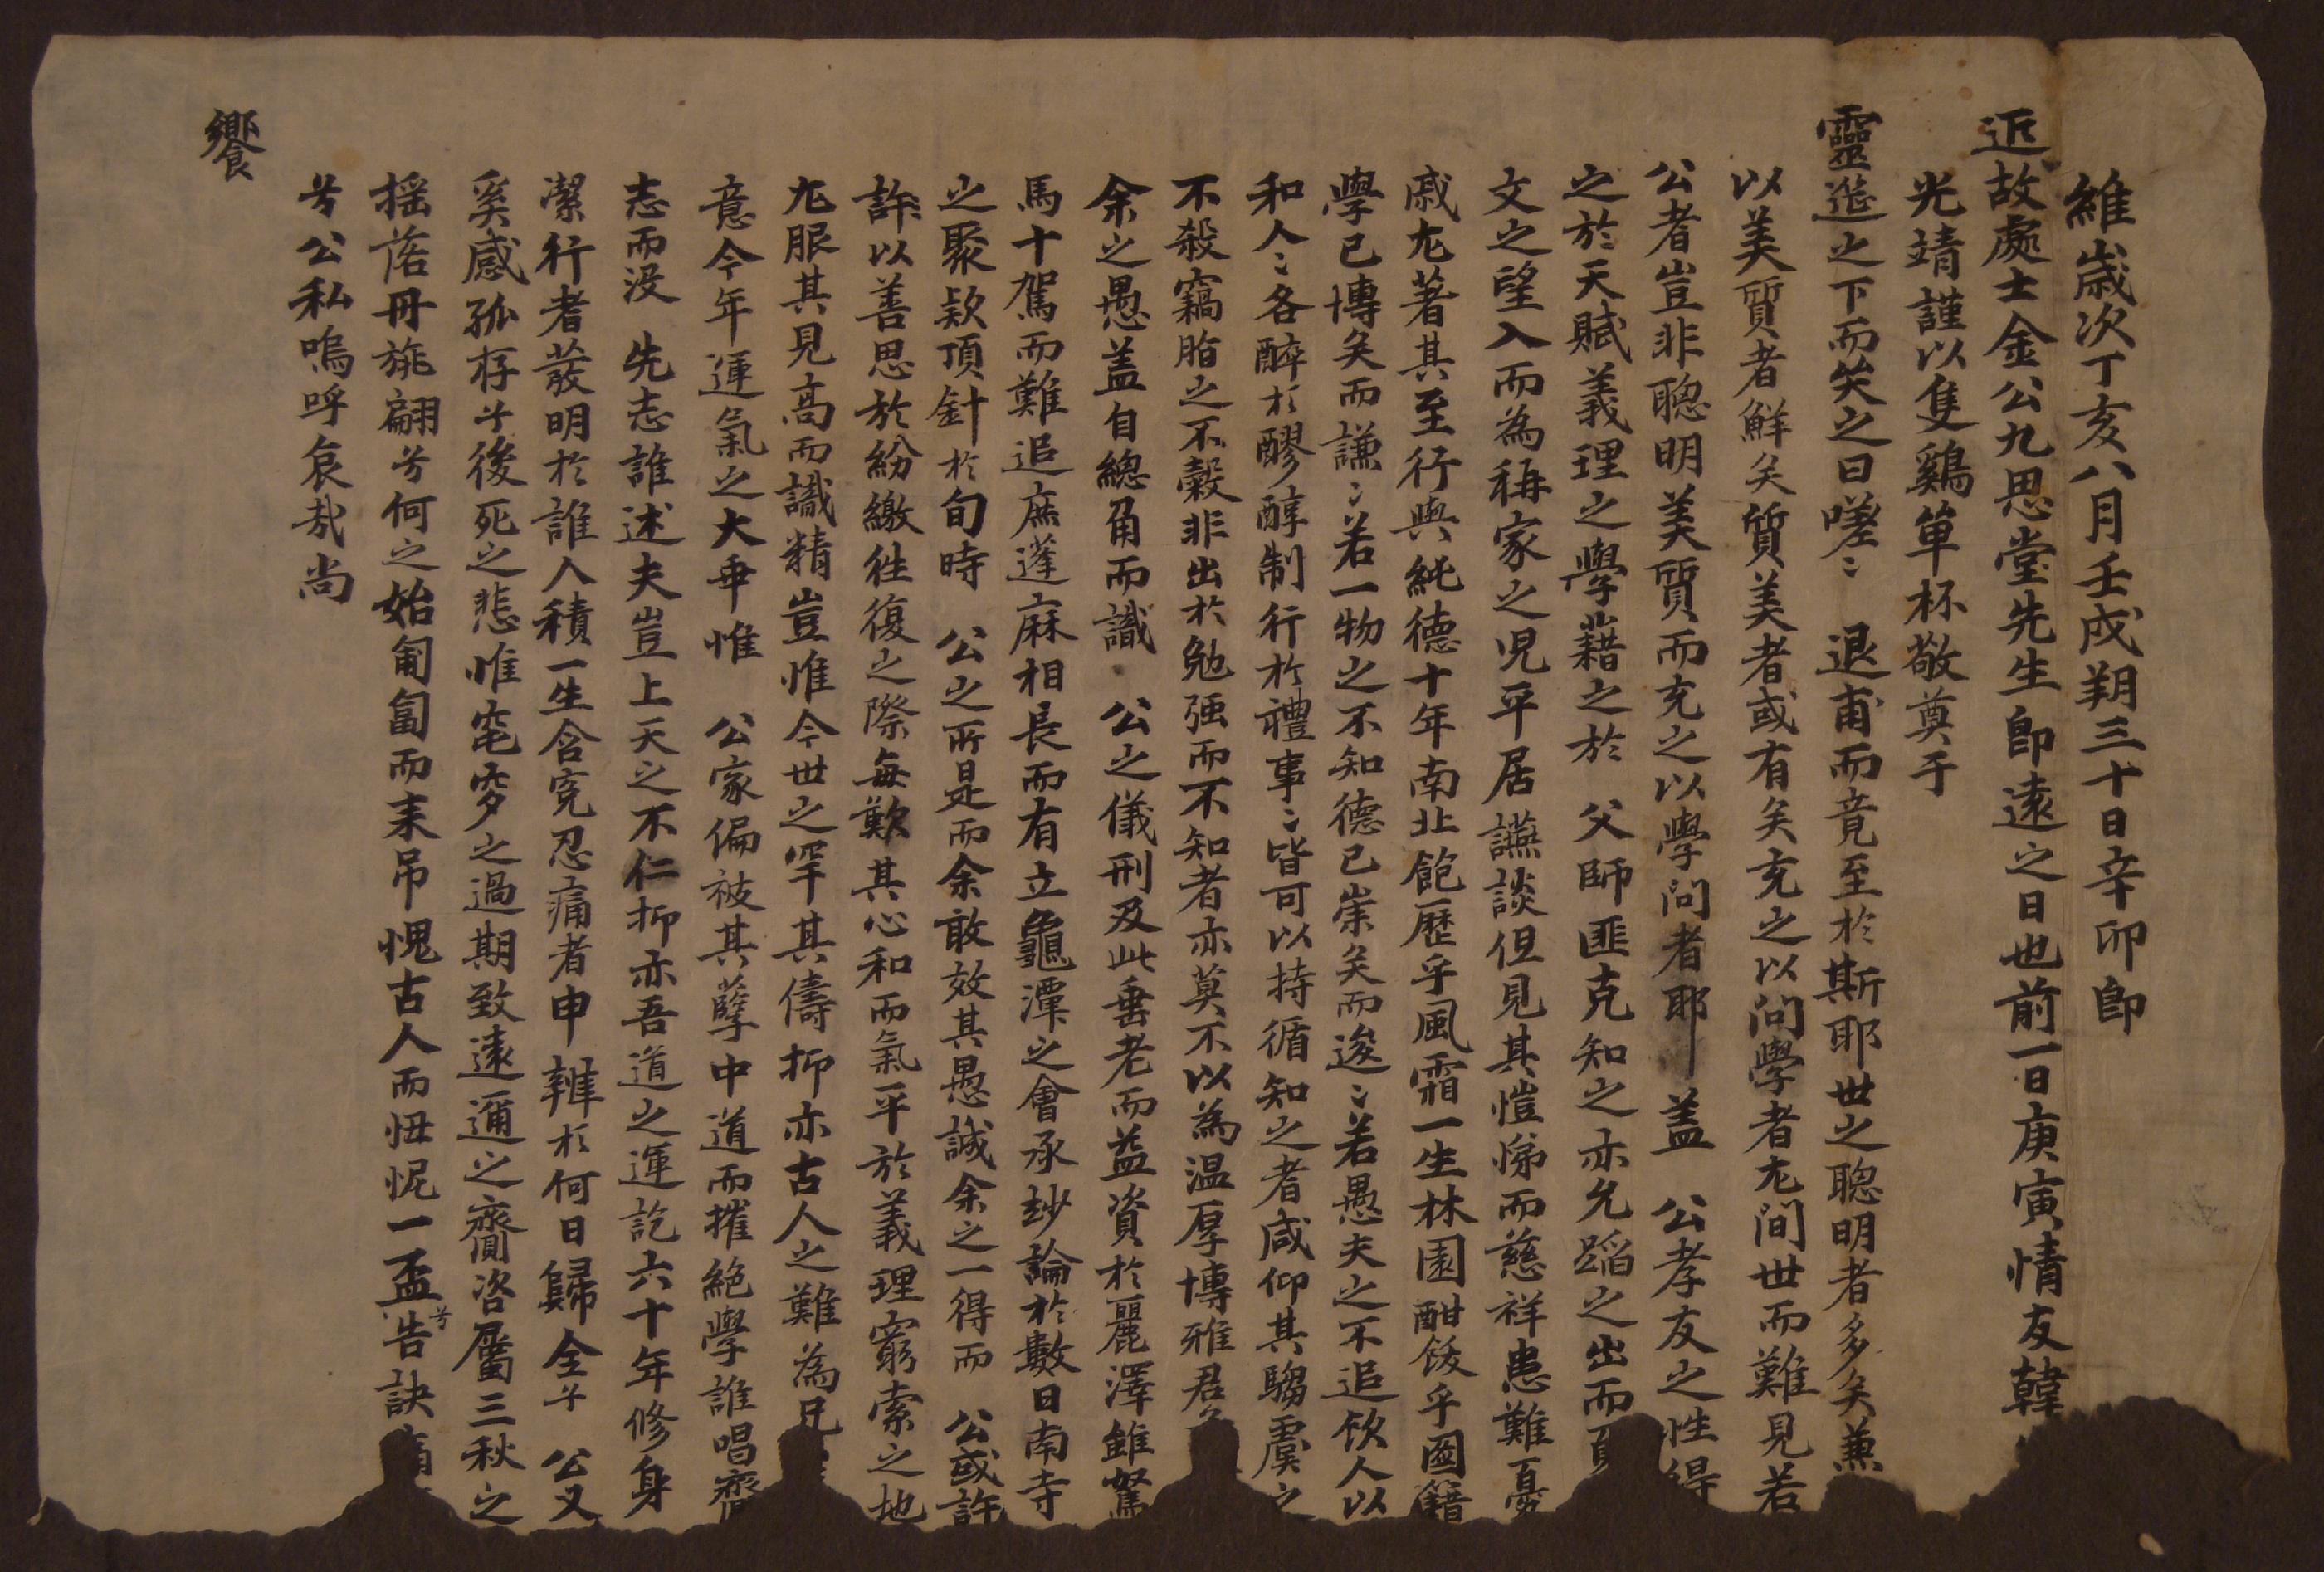 維歲次丁亥八月壬戌朔三十日辛卯即
近故處士金公九思堂先生卽遠之日也前一日庚寅情友韓
光靖謹以隻鷄單杯敬奠于
靈筵之下而哭之曰嗟〻 退甫而竟至於斯耶世之聰明者多矣兼
以美質者鮮矣質美者或有矣充之以問學者尤間世而難見若
公者豈非聰明美質而充之以學问者耶 盖 公孝友之性得
之於天賦義理之學藉之於 父師匪克知之亦允蹈之出而
文之望入而為稱家之児平居讌談但見其愷悌而慈祥患難憂
戚尤著其至行與純德十年南北飽歷乎風霜一生林園酣飫乎圖籍
學已博矣而謙〻若一物之不知德已崇矣而逡〻若愚夫之不追飲人以
和人〻各醉於醪醇制行於禮事〻皆可以持循知之者咸仰其騶虞之
不殺竊脂之不穀非出於勉强而不知者亦莫不以為温厚博雅君
余之愚盖自總角而識 公之儀刑及此垂老而益資於麗澤雖駑
馬十駕而難追庶蓬麻相長而有立龜潭之會承玅論於數日南寺
之聚欵頂針於旬時 公之所是而余敢效其愚誠余之一得而 公或許
許以善思於紛繳徃復之際每歎其心和而氣平於義理窮索之地
尤服其見高而識精豈惟今世之罕其儔抑亦古人之難為兄
意今年運氣之大乖惟 公家偏被其孽中道而摧絶學誰唱齎
志而沒 先志誰述夫豈上天之不仁抑亦吾道之運訖六十年修身
潔行者發明於誰人積一生含寃忍痛者申辨於何日歸全乎 公又
奚慼孤存乎後死之悲惟窀穸之過期致遠邇之齎咨屬三秋之
搖落丹旐翩兮何之始匍匐而來吊愧古人而忸怩一盃告兮訣痛
兮公私嗚呼哀哉尚
饗